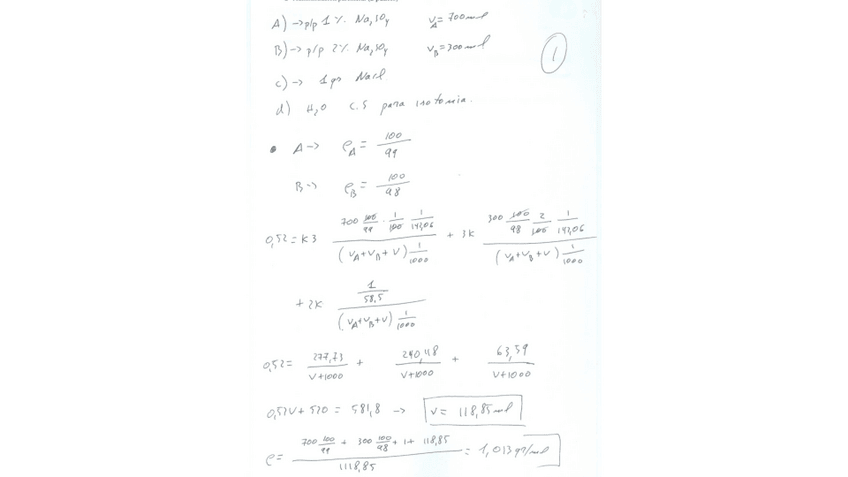 A) → p/p 1 % Na₂SO₄ V_A = 700 ml
B) → p/p 2 % Na₂SO₄ V_B = 300 ml
1
c) → 1 gr NaCl
d) H₂O c.s para isotomia.
• A → ρ_A = 100/99
B → ρ_B = 100/98
0,52 = K3 (700 100/99 · 1/100 · 1/142,06)/((V_A+V_B+V) 1/1000) + 3K (300 100/98 2/100 1/142,06)/((V_A+V_B+V) 1/1000)
+ 2K (1/58,5)/((V_A+V_B+V) 1/1000)
0,52 = 277,73/(V+1000) + 240,118/(V+1000) + 63,59/(V+1000)
0,52V + 520 = 581,8 → V = 118,85 ml
ρ = (700 100/99 + 300 100/98 + 1 + 118,85)/1118,85 = 1,013 gr/ml